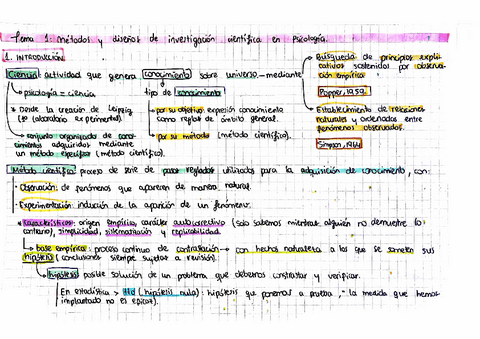 Tema 1: Métodos y diseños de investigación científica en Psicología.
1. INTRODUCCIÓN
Ciencia: actividad que genera conocimiento sobre universo - mediante
Búsqueda de principios explicativos sostenidos por observación empírica
Popper, 1959
Establecimiento de relaciones naturales y ordenadas entre fenómenos observados.
Simpson, 1964
psicología = ciencia
• Desde la creación de Leipzig
(1º laboratorio experimental).
conjunto organizado de conocimientos adquiridos mediante
un método específico (método científico).
tipo de conocimiento
por su objetivo: expresión conocimiento
como reglas de ámbito general.
por su método (método científico).
Método científico: proceso de serie de pasos reglados utilizados para la adquisición de conocimiento, con:
• Observación: de fenómenos que aparecen de manera natural.
• Experimentación: inducción de la aparición de un fenómeno.
• Características: origen empírico, carácter autocorrectivo (solo sabemos mientras alguien no demuestre lo
contrario), simplicidad, sistematización y replicabilidad.
base empírica: proceso continuo de contrastación → con hechos naturales a los que se someten sus
hipótesis (conclusiones siempre sujetas a revisión).
hipótesis: posible solución de un problema que debemos contrastar y verificar.
En estadística > H0 (hipótesis nula): hipótesis que ponemos a prueba, "la medida que hemos
implantado no es eficaz".